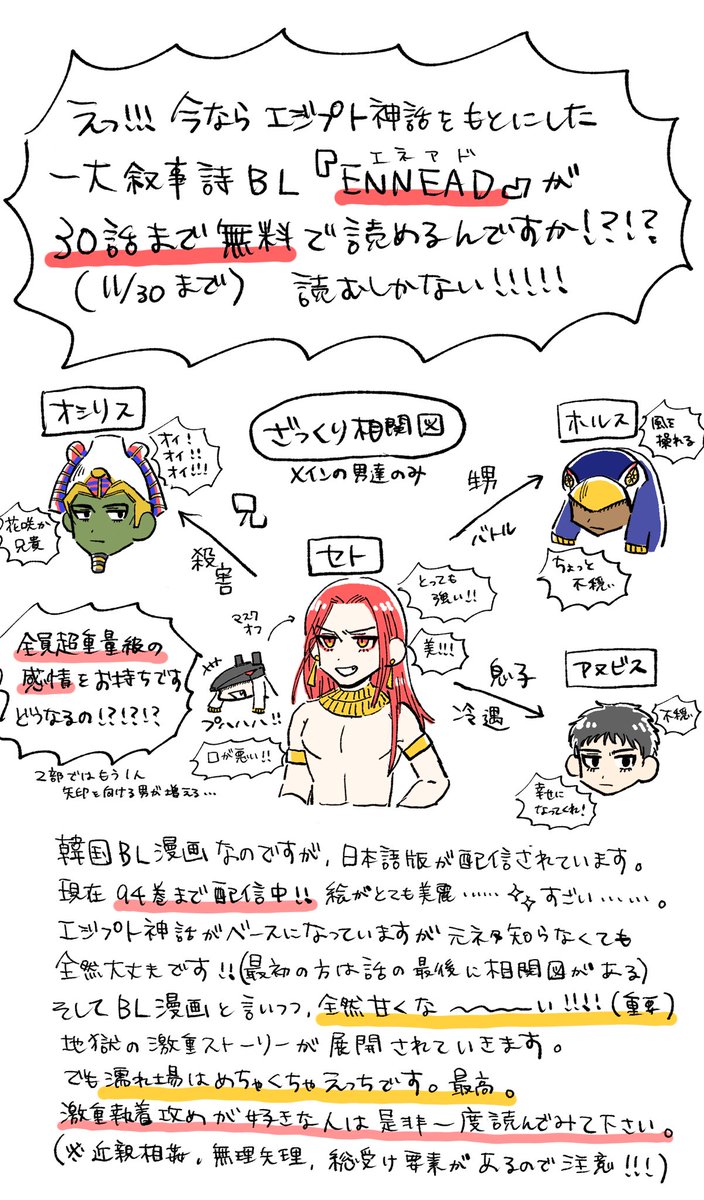 えっ!!! 今なら エジプト神話をもとにした
一大叙事詩BL『ENNEAD』が
エネアド
30話まで無料で読めるんですか!?!?
(11/30まで) 読むしかない!!!!!
ざっくり相関図
メインの男達のみ
オシリス
オイ!
オイ!!
オイ!!!
花咲か
兄貴
兄
殺害
ホルス
風を
操れる
ちょっと
不穏
甥
バトル
セト
とっても
強い!!
美!!!
マスク
オフ
プハハハ!!
口が悪い!!
息子
冷遇
アヌビス
不穏
幸せに
なってくれ!
全員超重量級の
感情をお持ちです
どうなるの!?!?!?
2部ではもう1人
矢印を向ける男が増える…
韓国BL漫画なのですが、日本語版が配信されています。
現在 94巻まで配信中!! 絵がとても美麗……すごい……。
エジプト神話がベースになっていますが元ネタ知らなくても
全然大丈夫です!!(最初の方は話の最後に相関図がある)
そしてBL漫画と言いつつ、全然甘くな〜〜〜い!!!!(重要)
地獄の激重ストーリーが展開されていきます。
でも濡れ場はめちゃくちゃえっちです。最高。
激重執着攻めが好きな人は是非一度読んでみて下さい。
(※近親相姦、無理矢理、総受け要素があるので注意!!!)